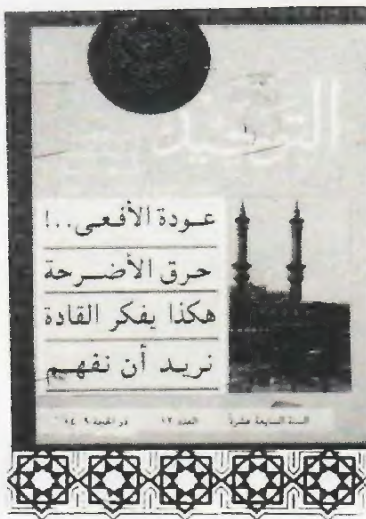 التوحيد
عودة الأفعى..!
حرق الأضرحة
هكذا يفكر القادة
نريد أن نفهم
السنة السابعة عشرة العدد ١٢ ذو الحجة ١٤٠٩